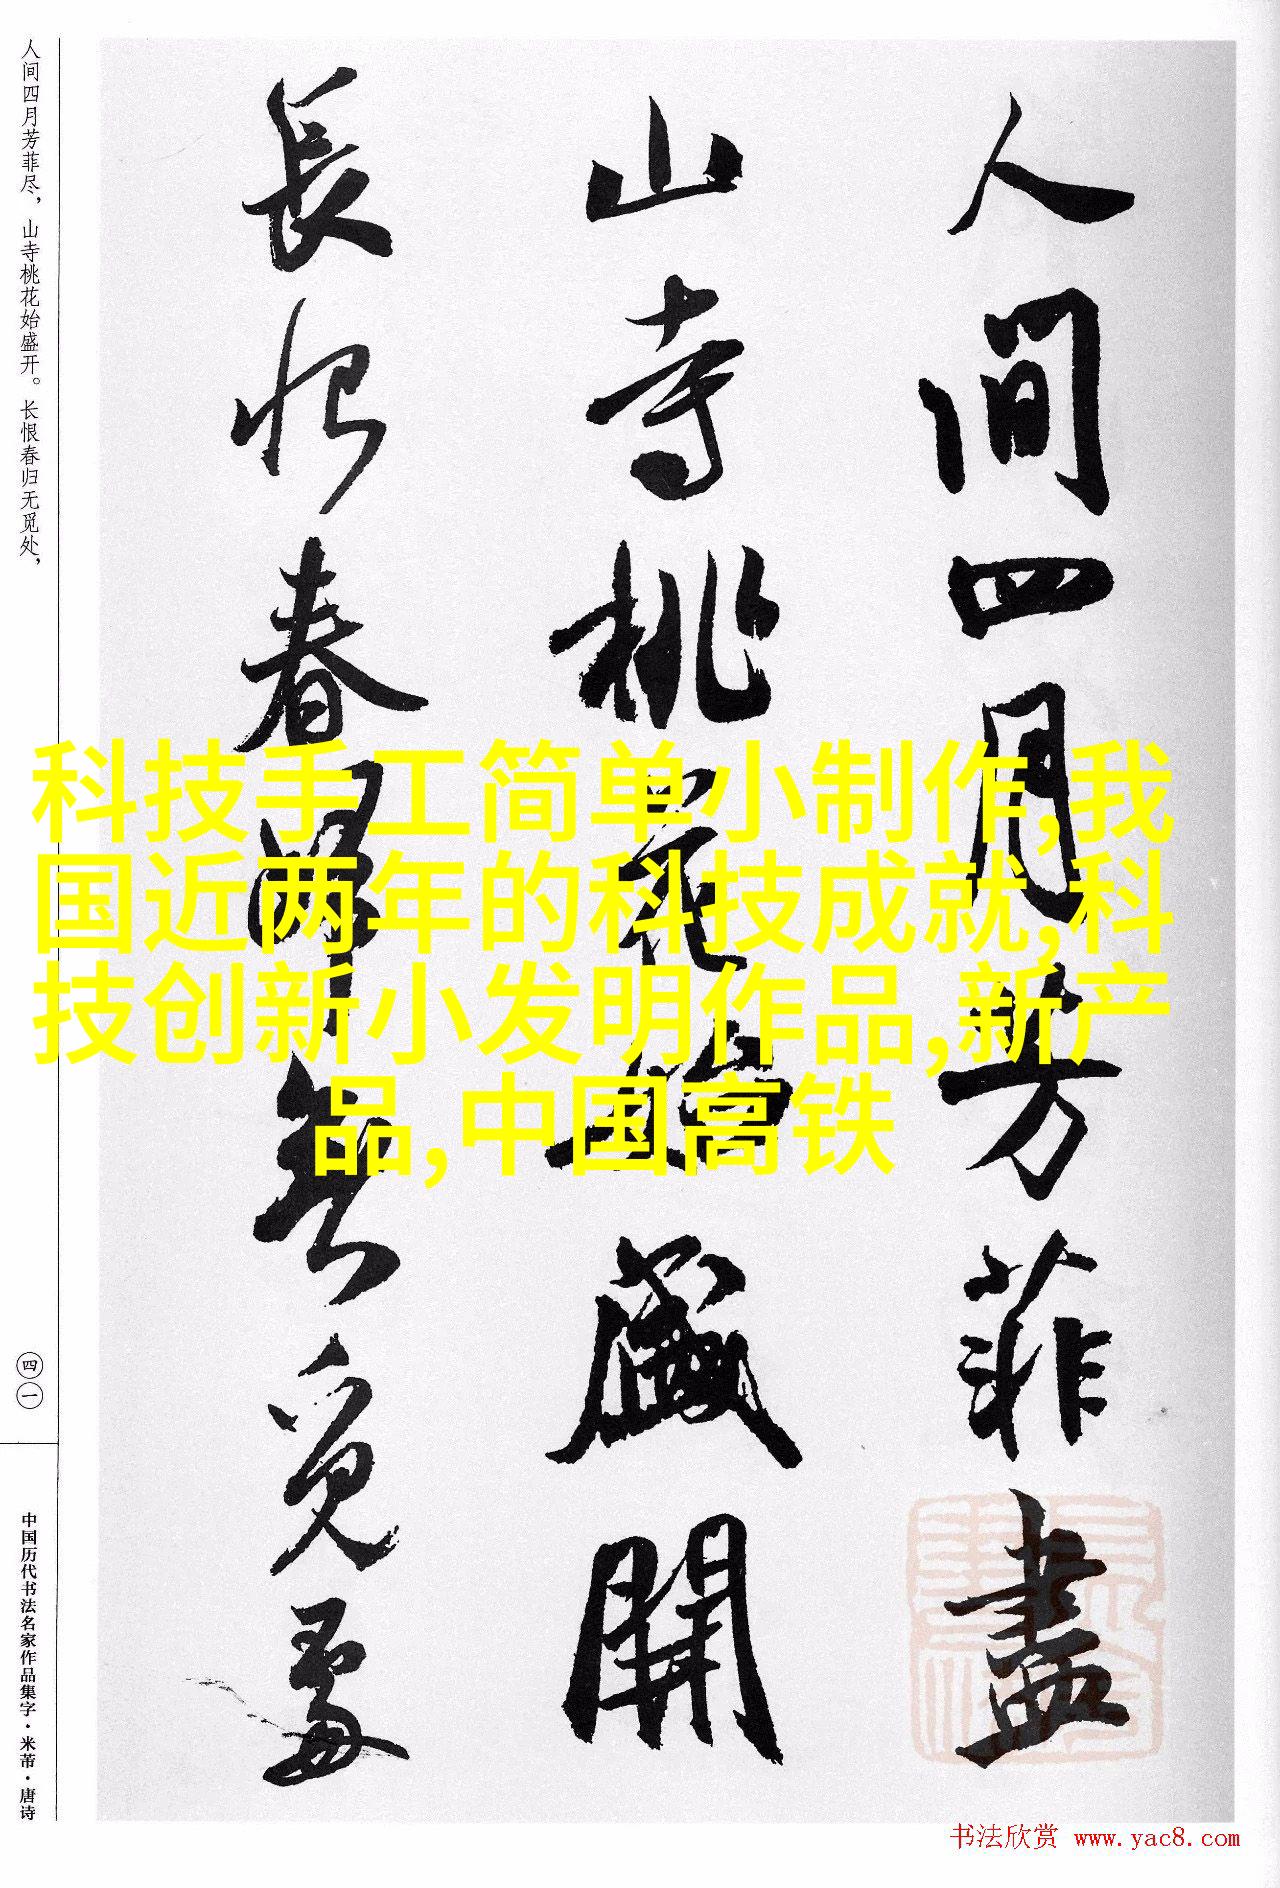 人间四月芳菲尽，山寺桃花始盛开。长恨春归无觅处，
人間四月芳菲盡
山寺桃花始盛開
長恨春歸無覓處
科技手工简单小制作,我
国近两年的科技成就,科
技创新小发明作品,新产
品,中国高铁
四一
中国历代书法名家作品集字·米芾·唐诗
书法欣赏 www.yac8.com